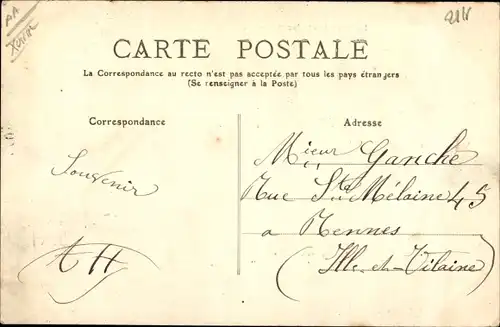 CARTE POSTALE
La Correspondance au recto n'est pas acceptée par tous les pays étrangers
(Se renseigner à la Poste)
Correspondance
Souvenir
AH
Adresse
Mieur Ganche
Rue Ste Mélaine 45
a Rennes
(Ille-et-Vilaine)